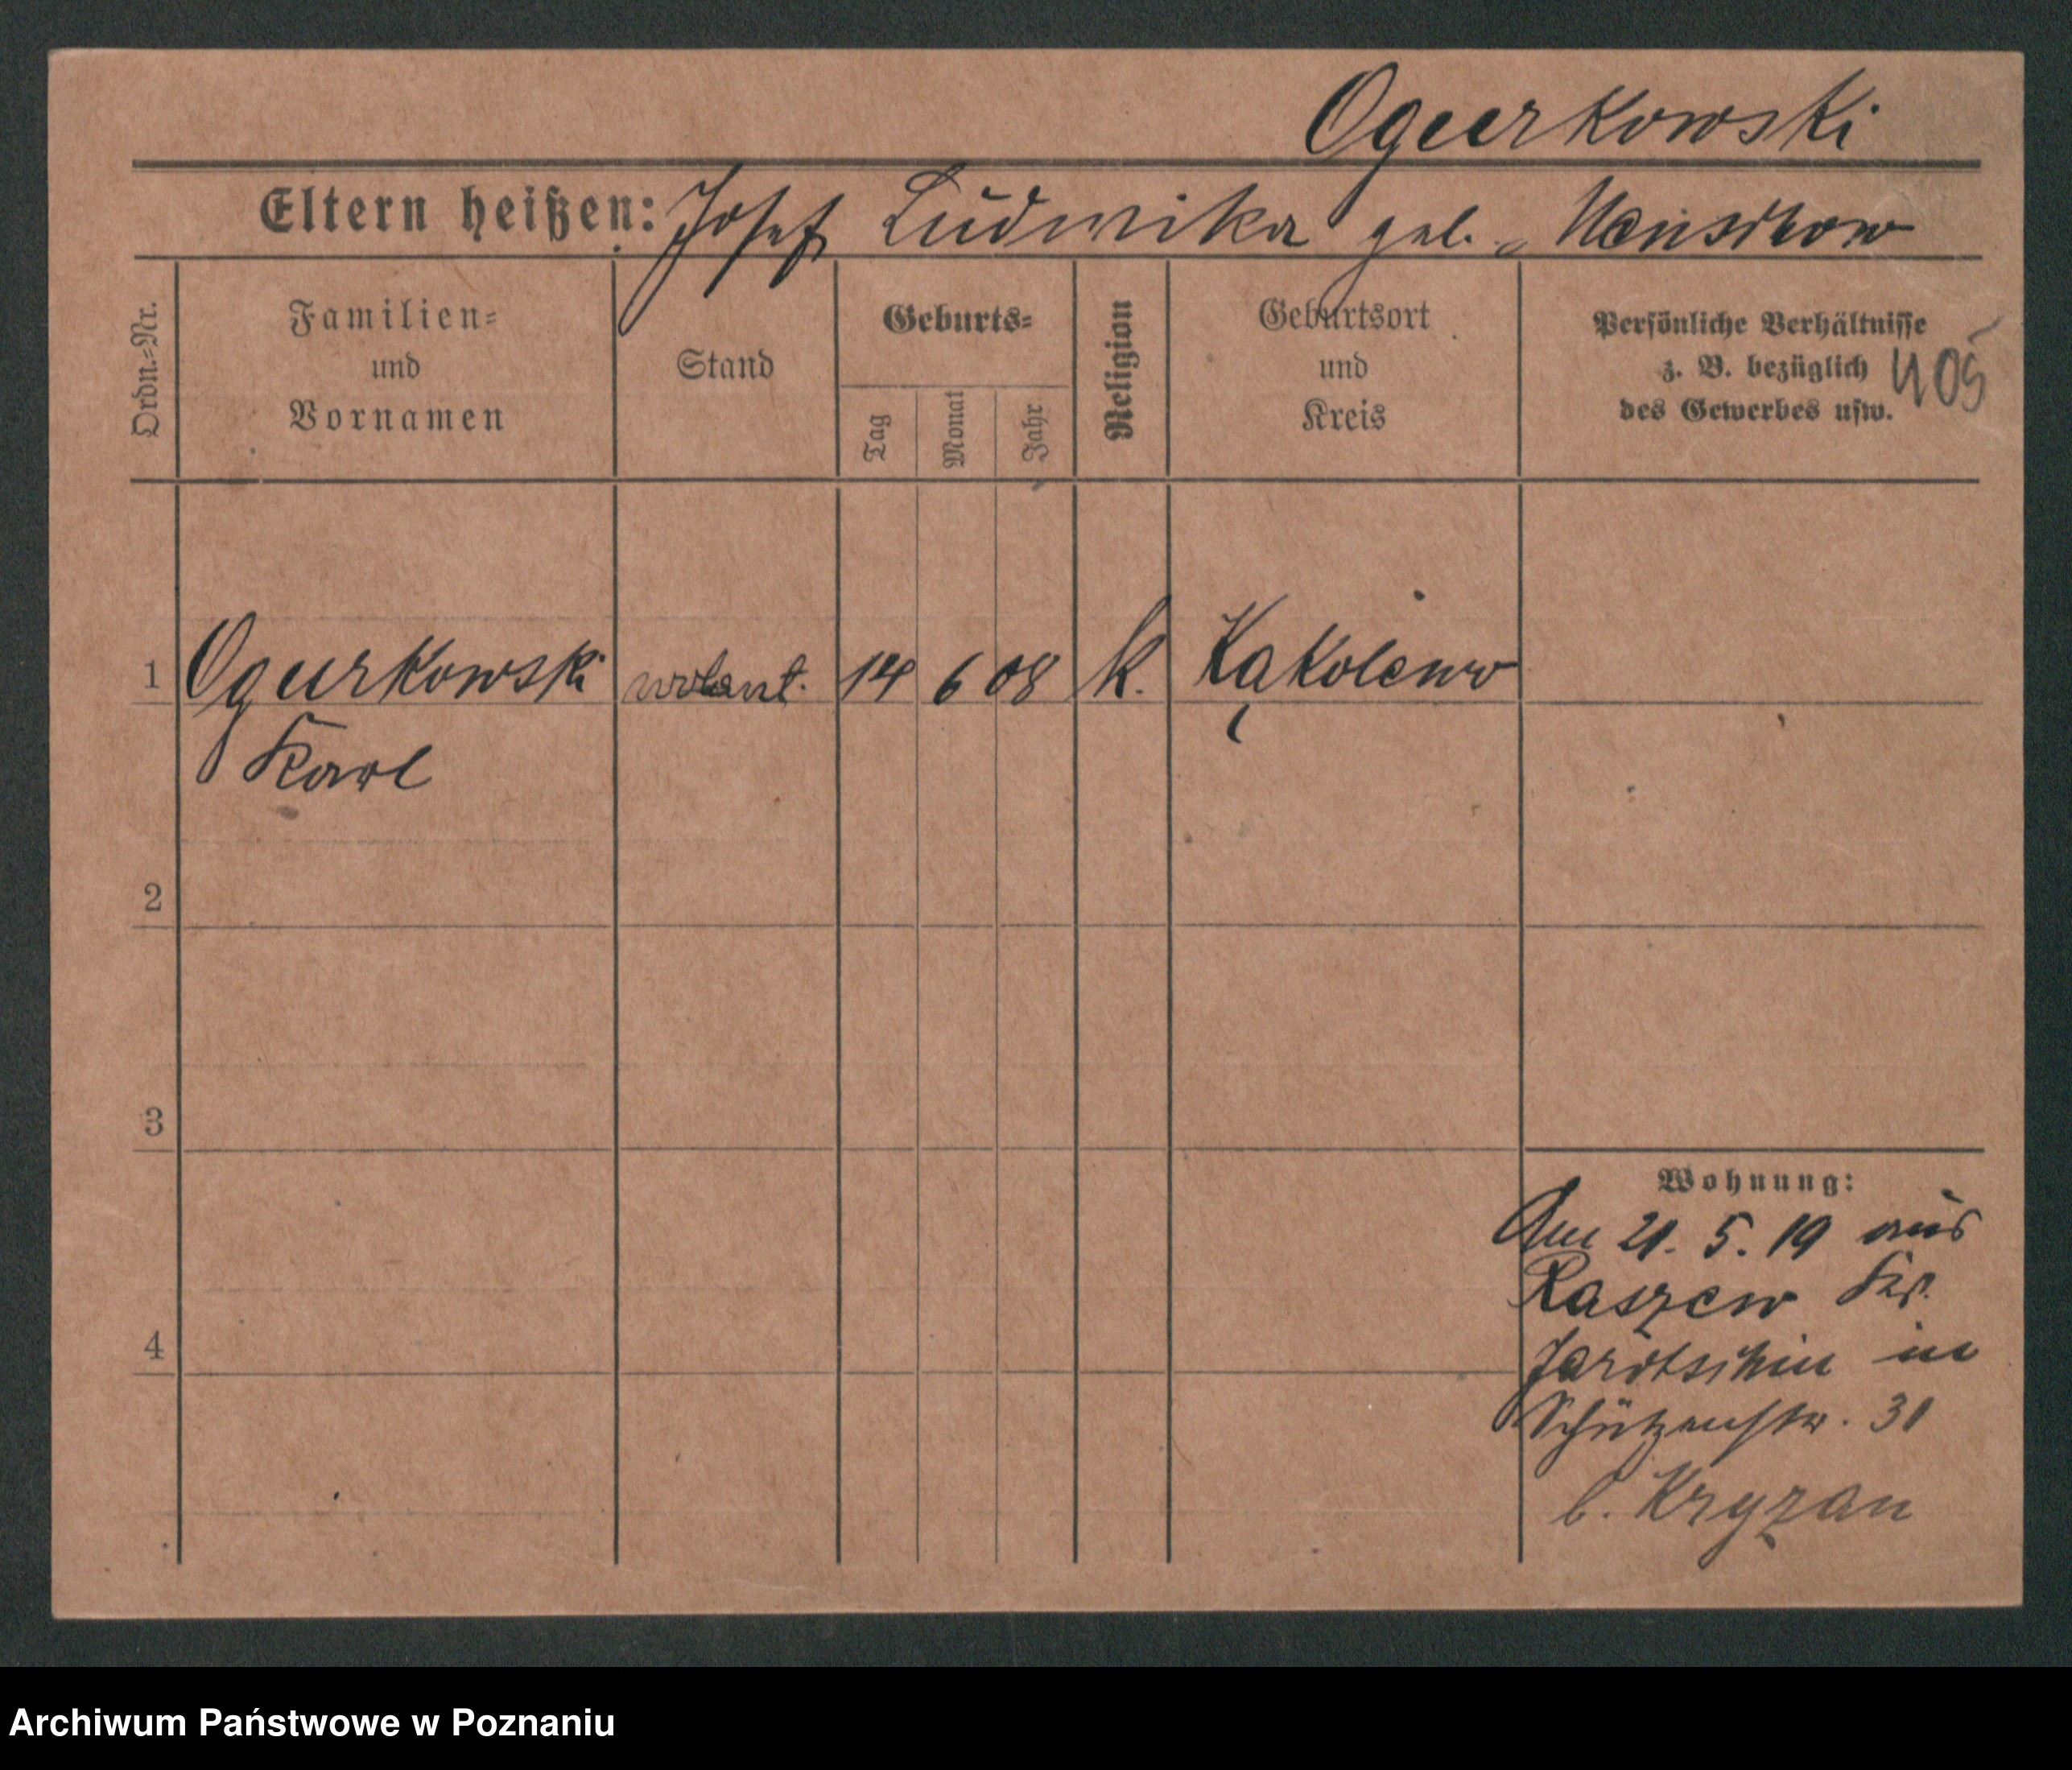 Ogurkowski
Eltern heißen: Josef Ludwika geb.
Ordn.-Nr.
Familien-
und
Vornamen
Stand
Geburts-
Tag
Monat
Jahr
Religion
Geburtsort
und
Kreis
Persönliche Verhältnisse
z. B. bezüglich
des Gewerbes usw.
405
1 Ogurkowski 14 6 08 k. Kąkolewo
Karl
2
3
4
Wohnung:
Am 21. 5. 19 aus
Raszew Kr.
Jarotschin in
Schützenstr. 31
b. Kryzan
Archiwum Państwowe w Poznaniu